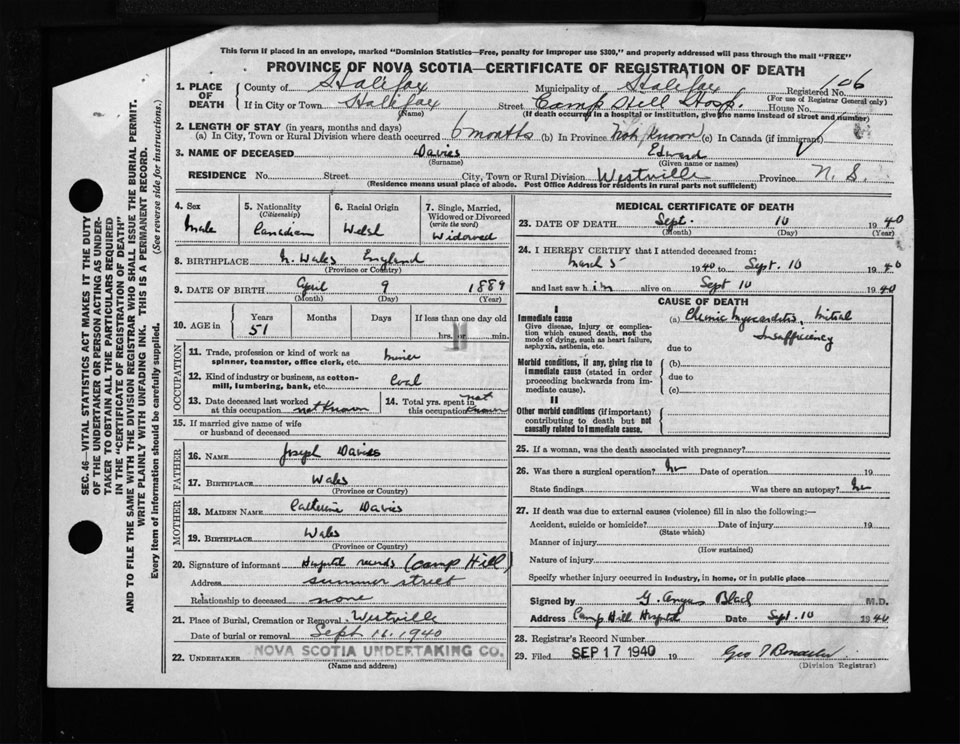 This form if placed in an envelope, marked "Dominion Statistics—Free, penalty for improper use $300," and properly addressed will pass through the mail "FREE"
PROVINCE OF NOVA SCOTIA—CERTIFICATE OF REGISTRATION OF DEATH
1. PLACE OF DEATH County of Halifax Municipality of Halifax Registered No. 106
(For use of Registrar General only)
If in City or Town Halifax Street Camp Hill Hosp. House No.
(Name) (If death occurred in a hospital or institution, give the name instead of street and number)
2. LENGTH OF STAY (in years, months and days)
(a) In City, Town or Rural Division where death occurred 6 months (b) In Province Not Known (c) In Canada (if immigrant)
3. NAME OF DECEASED Davies Edward
(Surname) (Given name or names)
RESIDENCE No. Street City, Town or Rural Division Westville Province N. S.
(Residence means usual place of abode. Post Office Address for residents in rural parts not sufficient)
4. Sex Male
5. Nationality (Citizenship) Canadian
6. Racial Origin Welsh
7. Single, Married, Widowed or Divorced (write the word) Widowed
8. BIRTHPLACE N. Wales England
(Province or Country)
9. DATE OF BIRTH April 9 1889
(Month) (Day) (Year)
10. AGE in Years 51 Months Days If less than one day hrs. or min.
OCCUPATION
11. Trade, profession or kind of work as spinner, teamster, office clerk, etc. miner
12. Kind of industry or business, as cotton-mill, lumbering, bank, etc. Coal
13. Date deceased last worked at this occupation not Known
14. Total yrs. spent in this occupation not known
15. If married give name of wife or husband of deceased
FATHER
16. Name Joseph Davies
17. Birthplace Wales
(Province or Country)
MOTHER
18. Maiden Name Catherine Davies
19. Birthplace Wales
(Province or Country)
20. Signature of informant Hospital records (Camp Hill)
Address summer street
Relationship to deceased none
21. Place of Burial, Cremation or Removal Westville
Date of burial or removal Sept 16. 1940
22. Undertaker NOVA SCOTIA UNDERTAKING CO.
(Name and address)
MEDICAL CERTIFICATE OF DEATH
23. DATE OF DEATH Sept. 10 1940
(Month) (Day) (Year)
24. I HEREBY CERTIFY that I attended deceased from:
March 5 1940 to Sept. 10 1940
and last saw him alive on Sept 10 1940
CAUSE OF DEATH
I
Immediate cause
Give disease, injury or complication which caused death, not the mode of dying, such as heart failure, asphyxia, asthenia, etc.
(a) Chronic Myocarditis, Mitral Insufficiency
due to
Morbid conditions, if any, giving rise to immediate cause (stated in order proceeding backwards from immediate cause).
(b)
due to
(c)
II
Other morbid conditions (if important) contributing to death but not causally related to immediate cause.
25. If a woman, was the death associated with pregnancy?
26. Was there a surgical operation? No Date of operation 19
State findings Was there an autopsy? No
27. If death was due to external causes (violence) fill in also the following:—
Accident, suicide or homicide? Date of injury 19
(State which)
Manner of injury
(How sustained)
Nature of injury
Specify whether injury occurred in industry, in home, or in public place
Signed by G. Angus Black M.D.
Address Camp Hill Hospital Date Sept. 10 1940
28. Registrar's Record Number
29. Filed SEP 17 1940 19
(Division Registrar)
SEC. 46—VITAL STATISTICS ACT MAKES IT THE DUTY
OF THE UNDERTAKER OR PERSON ACTING AS UNDER-
TAKER TO OBTAIN ALL THE PARTICULARS REQUIRED
IN THE "CERTIFICATE OF REGISTRATION OF DEATH"
AND TO FILE THE SAME WITH THE DIVISION REGISTRAR WHO SHALL ISSUE THE BURIAL PERMIT.
WRITE PLAINLY WITH UNFADING INK. THIS IS A PERMANENT RECORD.
Every item of information should be carefully supplied. (See reverse side for instructions.)